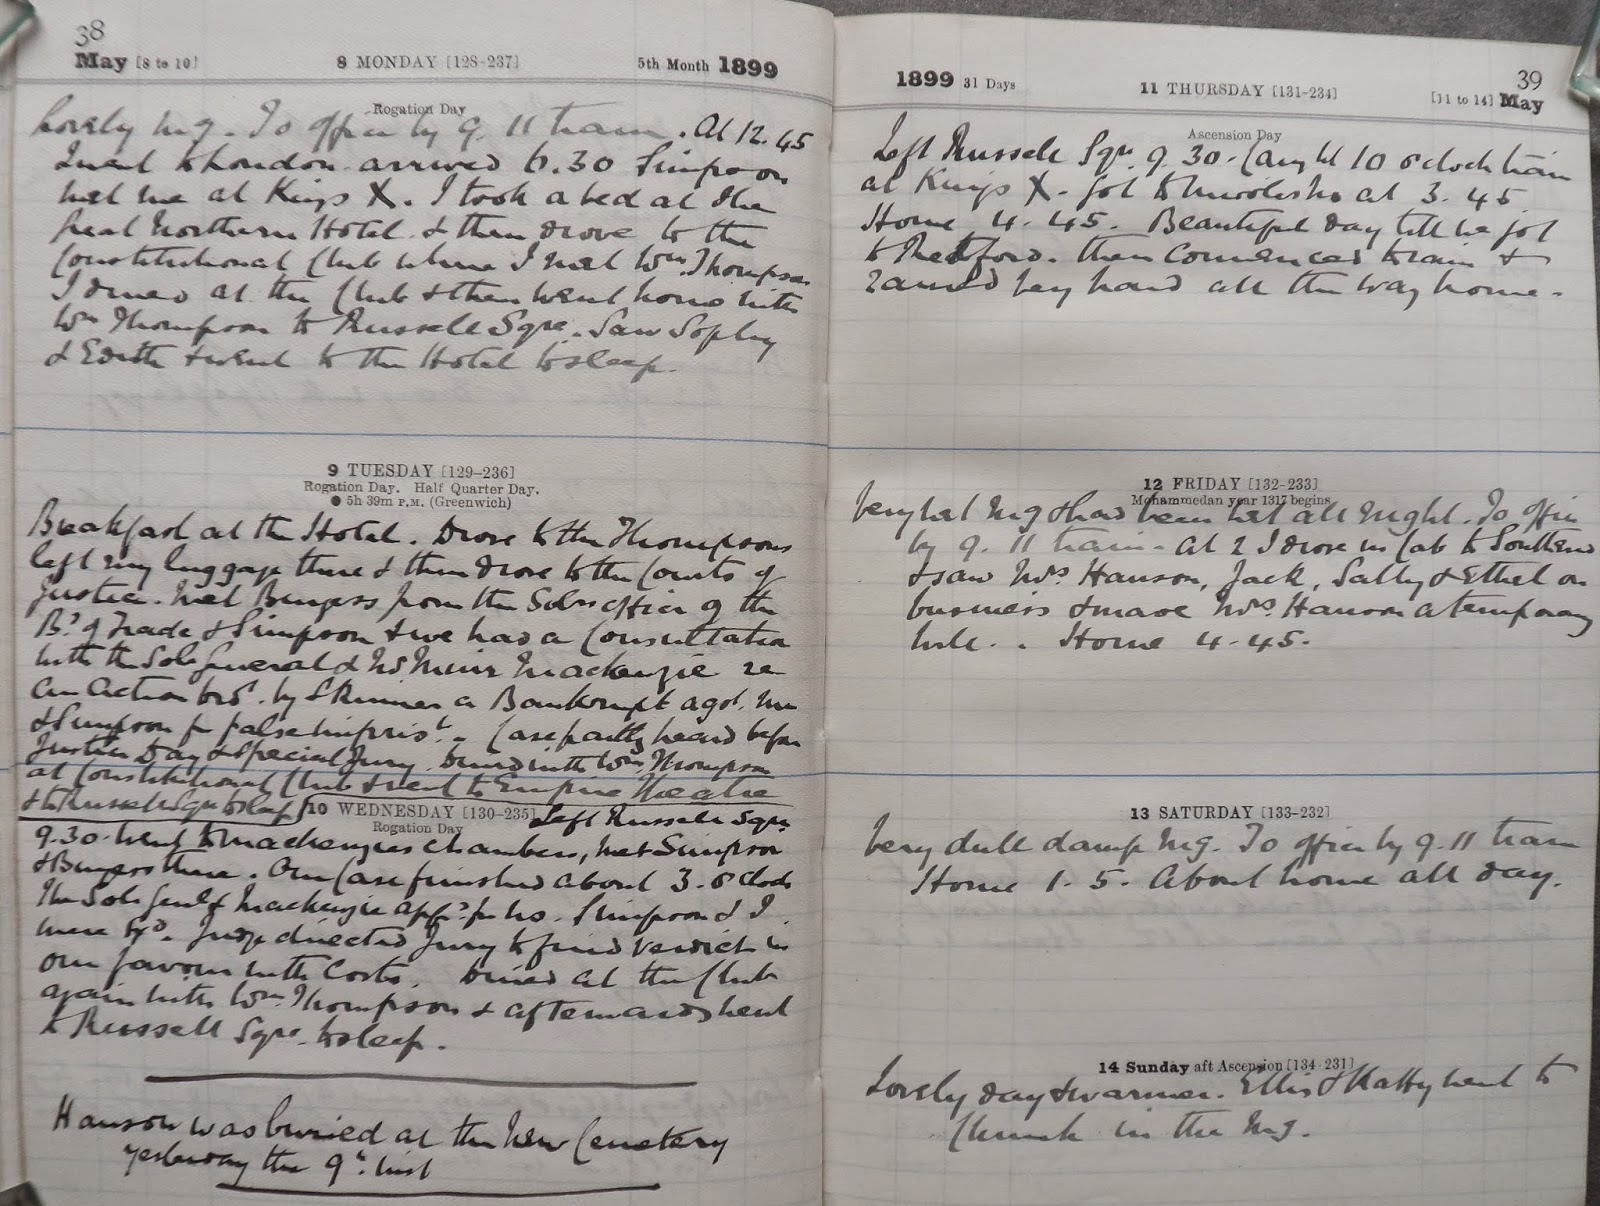 38
May [8 to 10] 8 MONDAY [128-237] 5th Month 1899
Rogation Day
Lovely Mg. To office by 9.11 train. At 12.45
I went to London arrived 6.30 Simpson
met me at Kings X. I took a bed at the
Great Northern Hotel & then drove to the
Constitutional Club where I met Wm. Thompson
I dined at the Club & then went home with
Wm Thompson to Russell Sqre. Saw Sophy
& Edith & went to the Hotel to sleep.
9 TUESDAY [129-236]
Rogation Day. Half Quarter Day.
● 5h 39m P.M. (Greenwich)
Breakfast at the Hotel. Drove to the Thompsons
left my luggage there & then drove to the Courts of
Justice. Met Burgess from the Solrs office of the
Bd of Trade & Simpson & we had a Consultation
with the Solr General & Mr Muir Mackenzie re
an action brot. by Skinner a Bankrupt agst. me
& Simpson for false imprist. - Case partly heard before
Justice Day & special Jury. Dined with Wm. Thompson
at Constitutional Club & went to Empire Theatre
& to Russell Sqre to sleep
10 WEDNESDAY [130-235] Left Russell Sqre
Rogation Day
9.30 went to Mackenzies Chambers, met Simpson
& Burgess there. Our Case finished about 3. o Clock
The Solr Genl & Mackenzie appd. for us. Simpson & I
were Judge directed Jury to find verdict in
our favour with Costs. Dined at the Club
again with Wm. Thompson & afterwards went
to Russell Sqre. to sleep.
Hanson was buried at the New Cemetery
yesterday the 9th. inst
39
1899 31 Days 11 THURSDAY [131-234] [11 to 14] May
Ascension Day
Left Russell Sqre 9.30. Caught 10 o clock train
at Kings X. got to at 3.45
Home 4.45. Beautiful day till we got
to Retford. then Commenced to rain &
rained very hard all the way home.
12 FRIDAY [132-233]
Mohammedan year 1317 begins
Very wet Mg & had been wet all Night. To office
by 9.11 train - at 2 I drove in Cab to
& saw Mrs Hanson, Jack, Sally & Ethel on
business & made Mrs. Hanson a temporary
Will. . Home 4.45.
13 SATURDAY [133-232]
Very dull damp Mg. To office by 9.11 train
Home 1.5. About home all day.
14 Sunday aft Ascension [134-231]
Lovely day & warmer. Ellis & Katty went to
Church in the Mg.